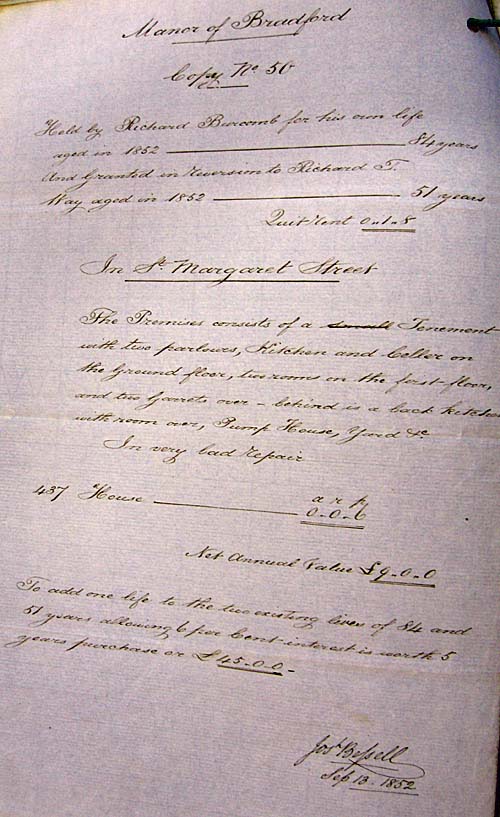 Manor of Bradford
Copy No. 50
Held by Richard Burcomb for his own life
aged in 1852 84 years
And Granted in Reversion to Richard T.
Way aged in 1852 51 years
Quit Rent 0..1..8
In St. Margaret Street
The Premises consists of a small Tenement
with two parlours, Kitchen and Celler on
the Ground floor, two rooms on the first-floor,
and two Garrets over - behind is a back kitchen
with room over, Pump House, Yard &c
In very bad repair
437 House a r p
0..0..6
Net Annual Value £9..0..0
To add one life to the two existing lives of 84 and
51 years allowing 6 per Cent interest is worth 5
years purchase or £45..0..0-
Josh. Bissell
Sep 13. 1852